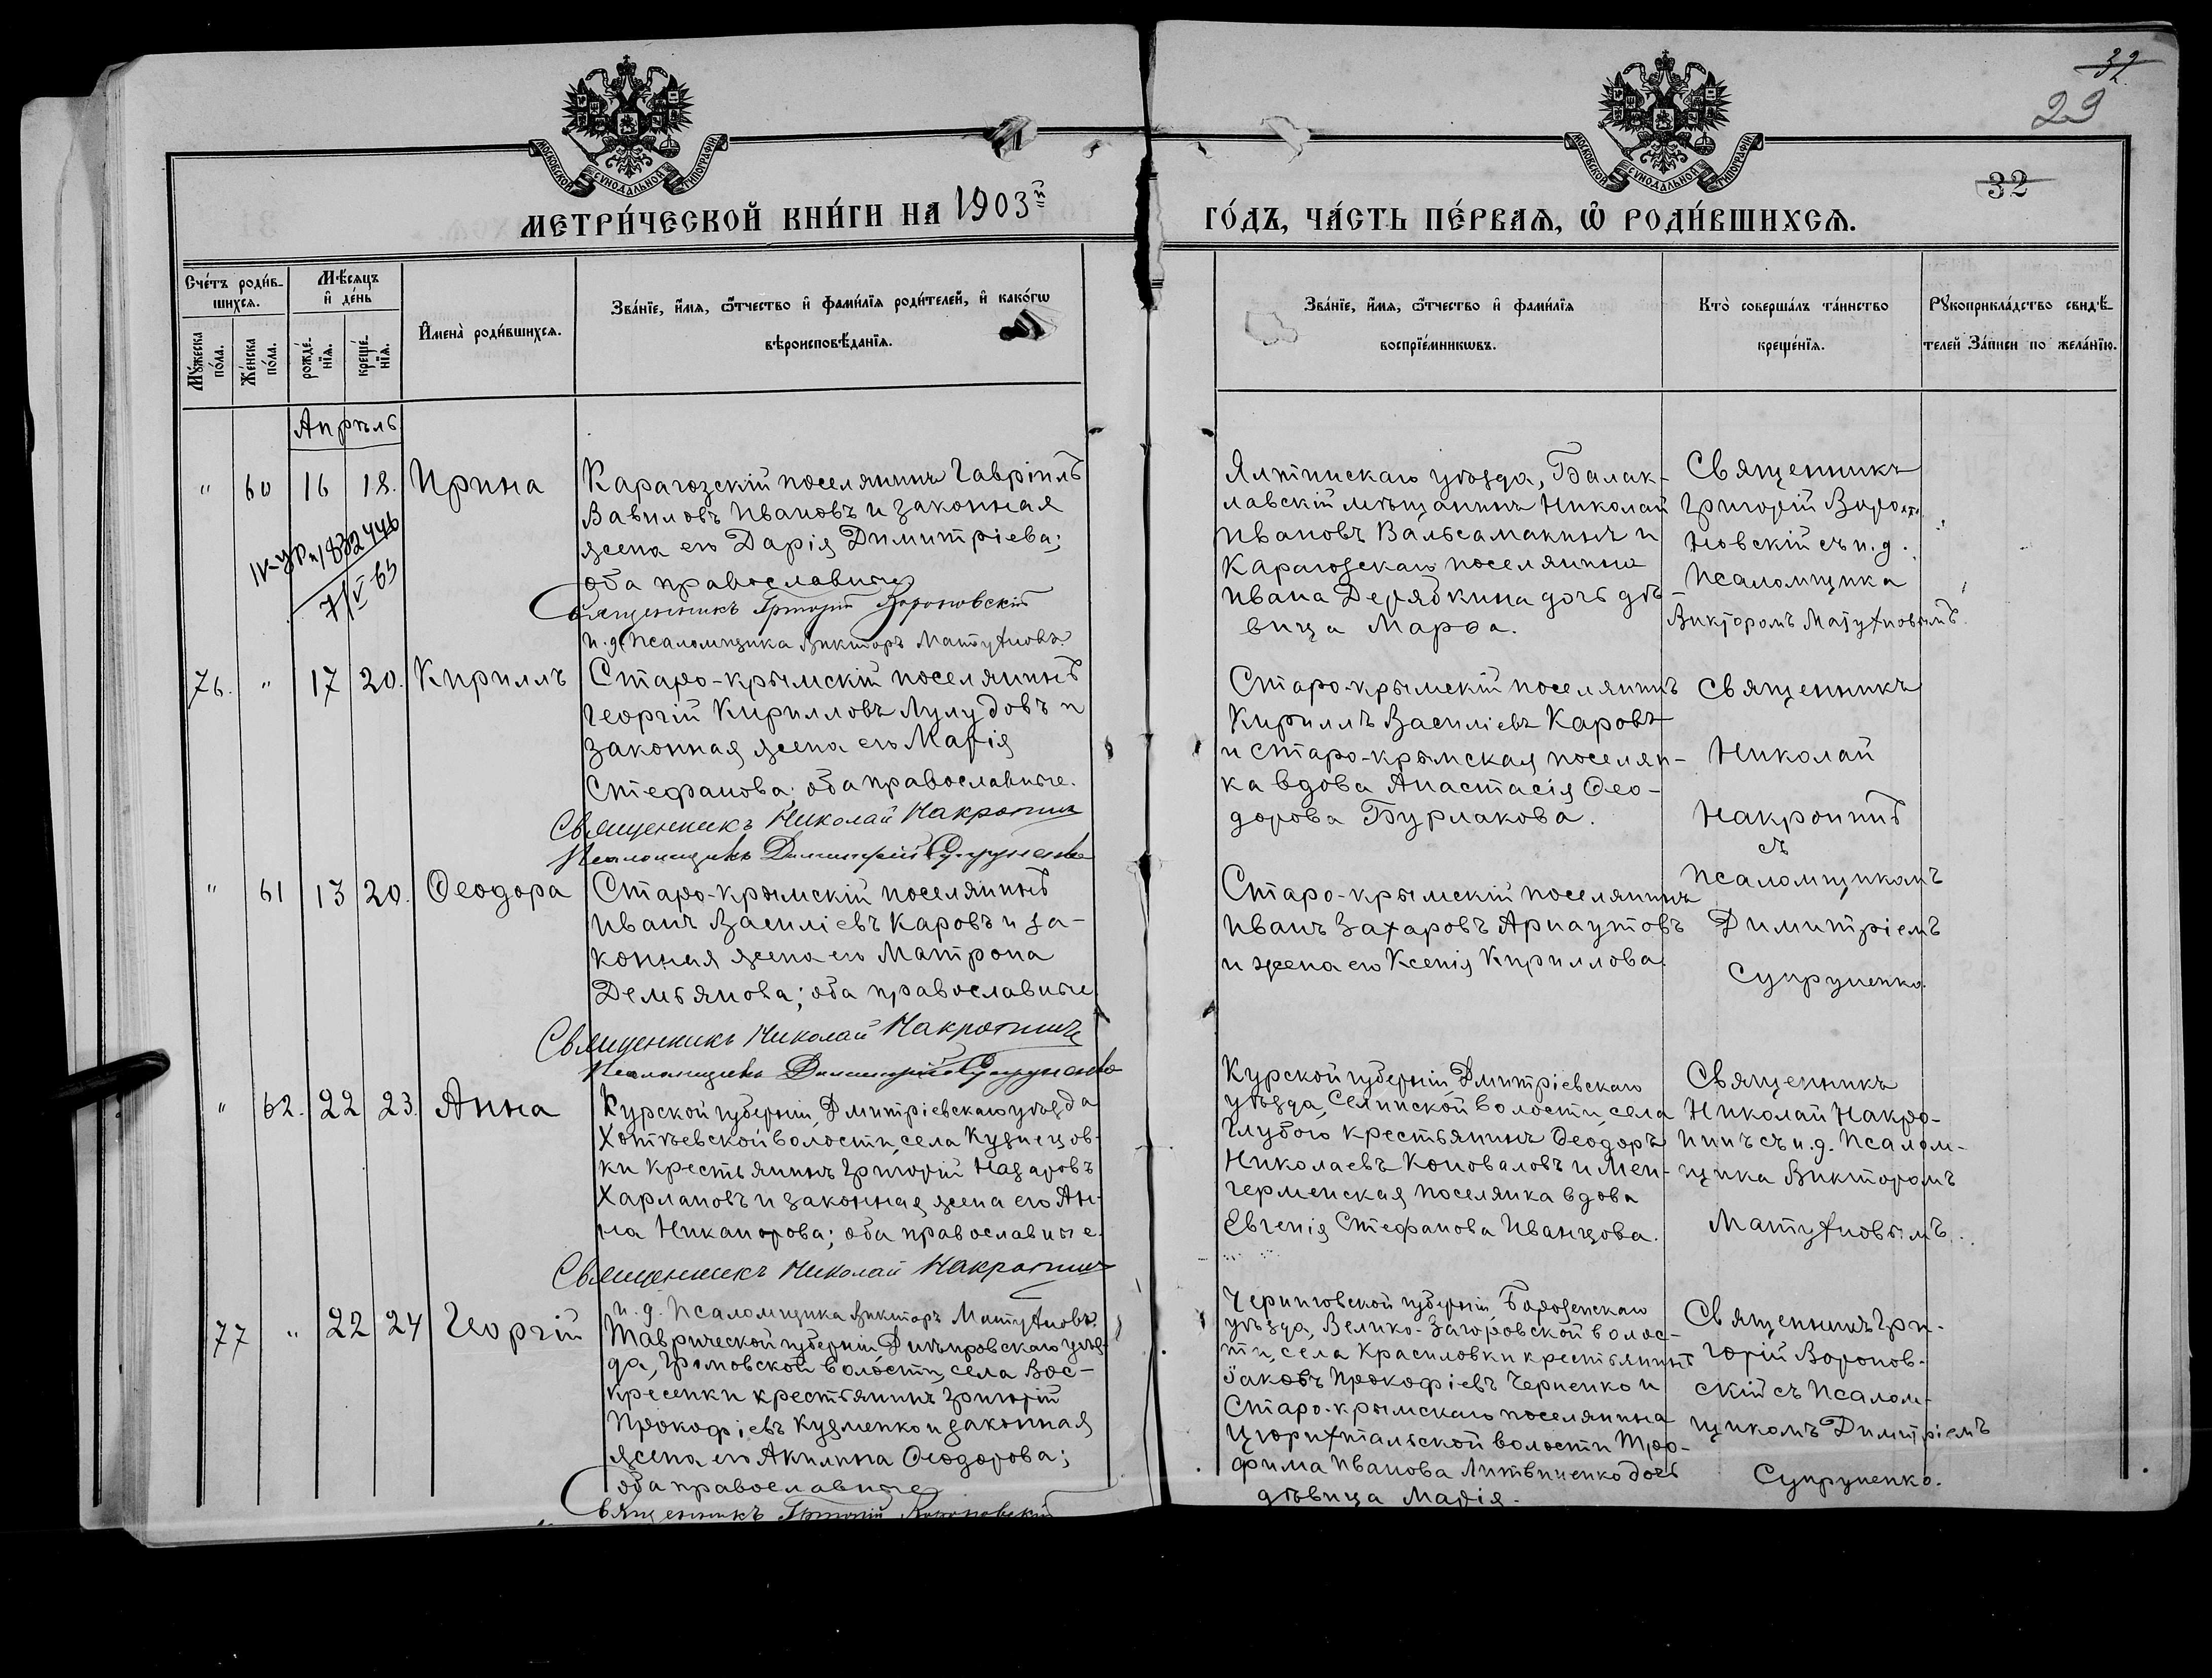 32
29
32
МОСКОВСКОЙ СѴНОДАЛЬНОЙ ТИПОГРАФІИ
МОСКОВСКОЙ СѴНОДАЛЬНОЙ ТИПОГРАФІИ
МЕТРИ́ЧЕСКОЙ КНИ́ГИ НА 1903й
ГО́ДЪ, ЧА́СТЬ ПЕ́РВАѦ, Ѡ҆ РОДИ́ВШИХСѦ.
Сче́тъ роди́в-
шихсѧ.
Мꙋ́жеска
по́ла.
Же́нска
по́ла.
Мѣ́сѧцъ
и҆ де́нь
рожде́-
нїѧ.
креще́-
нїѧ.
И҆мена̀ роди́вшихсѧ.
Зва́нїе, и҆́мѧ, ѻ҆́тчество и҆ фами́лїѧ роди́телей, и҆ како́гѡ
вѣроисповѣ́данїѧ.
Зва́нїе, и҆́мѧ, ѻ҆́тчество и҆ фами́лїѧ
воспрїе́мникѡвъ.
Кто̀ соверша́лъ та́инство
креще́нїѧ.
Рꙋкоприкла́дство свидѣ́-
телей За́писи по жела́нїю.
Апрѣль
" 60 16 18. Ирина
Карагозскій поселянинъ Гавріилъ
Вавиловъ Ивановъ и законная
жена его Дарія Димитріева;
оба православные
Священникъ Григорій Вороновскій
и. д. Псаломщика Викторъ Матухновъ
Ялтинскаго уѣзда, Балак-
лавскій мѣщанинъ Николай
Ивановъ Вальсамакинъ и
Карагозскаго поселянина
Ивана Дерябкина дочь дѣ-
вица Марѳа.
Священникъ
Григорій Воро-
новскій съ и. д.
Псаломщика
Викторомъ Матухновымъ.
7/V 63
76. " 17 20. Кириллъ
Старо-крымскій поселянинъ
Георгій Кирилловъ Лулудовъ и
законная жена его Марія
Стефанова; оба православные.
Священникъ Николай Накропинъ
Псаломщикъ Димитрій Супруненко
Старо-крымскій поселянинъ
Кириллъ Василіевъ Каровъ
и Старо-крымская поселян-
ка вдова Анастасія Ѳео-
дорова Бурлакова.
Священникъ
Николай
Накропинъ
съ
Псаломщикомъ
Димитріемъ
Супруненко.
" 61 13 20. Ѳеодора
Старо-крымскій поселянинъ
Иванъ Василіевъ Каровъ и за-
конная жена его Матрона
Демьянова; оба православные
Священникъ Николай Накропинъ
Псаломщикъ Димитрій Супруненко
Старо-крымскій поселянинъ
Иванъ Захаровъ Арнаутовъ
и жена его Ксенія Кириллова.
" 62. 22 23. Анна
Курской губерніи, Дмитріевскаго уѣзда
Хотѣевской волости, села Кузнецов-
ки крестьянинъ Григорій Назаровъ
Харлановъ и законная жена его Ан-
на Никанорова; оба православные.
Священникъ Николай Накропинъ
и. д. Псаломщика Викторъ Матухновъ.
Курской губерніи, Дмитріевскаго
уѣзда, волости, села
Глубого крестьянинъ Ѳеодоръ
Николаевъ Коноваловъ и Мен-
герменская поселянка вдова
Евгенія Стефанова Иванцова.
Священникъ
Николай Накро-
пинъ съ и. д. Псалом-
щика Викторомъ
Матухновымъ.
77 " 22 24 Георгій
Таврической губерніи, Днѣпровскаго уѣз-
да, Громовской волости, села Вос-
кресенки крестьянинъ Григорій
Прокофіевъ Кузменко и законная
жена его Акилина Ѳеодорова;
оба православные
Священникъ Григорій Вороновскій
Черниговской губерніи, Борзенскаго
уѣзда, Велико-Загоровской волос-
ти, села Красиловки крестьянинъ
Іаковъ Прокофіевъ Черненко и
Старо-крымскаго поселянина
Цюрихтальской волости Тро-
фима Иванова Литвиненко дочь
дѣвица Марія.
Священникъ Гри-
горій Воронов-
скій съ Псалом-
щикомъ Димитріемъ
Супруненко.